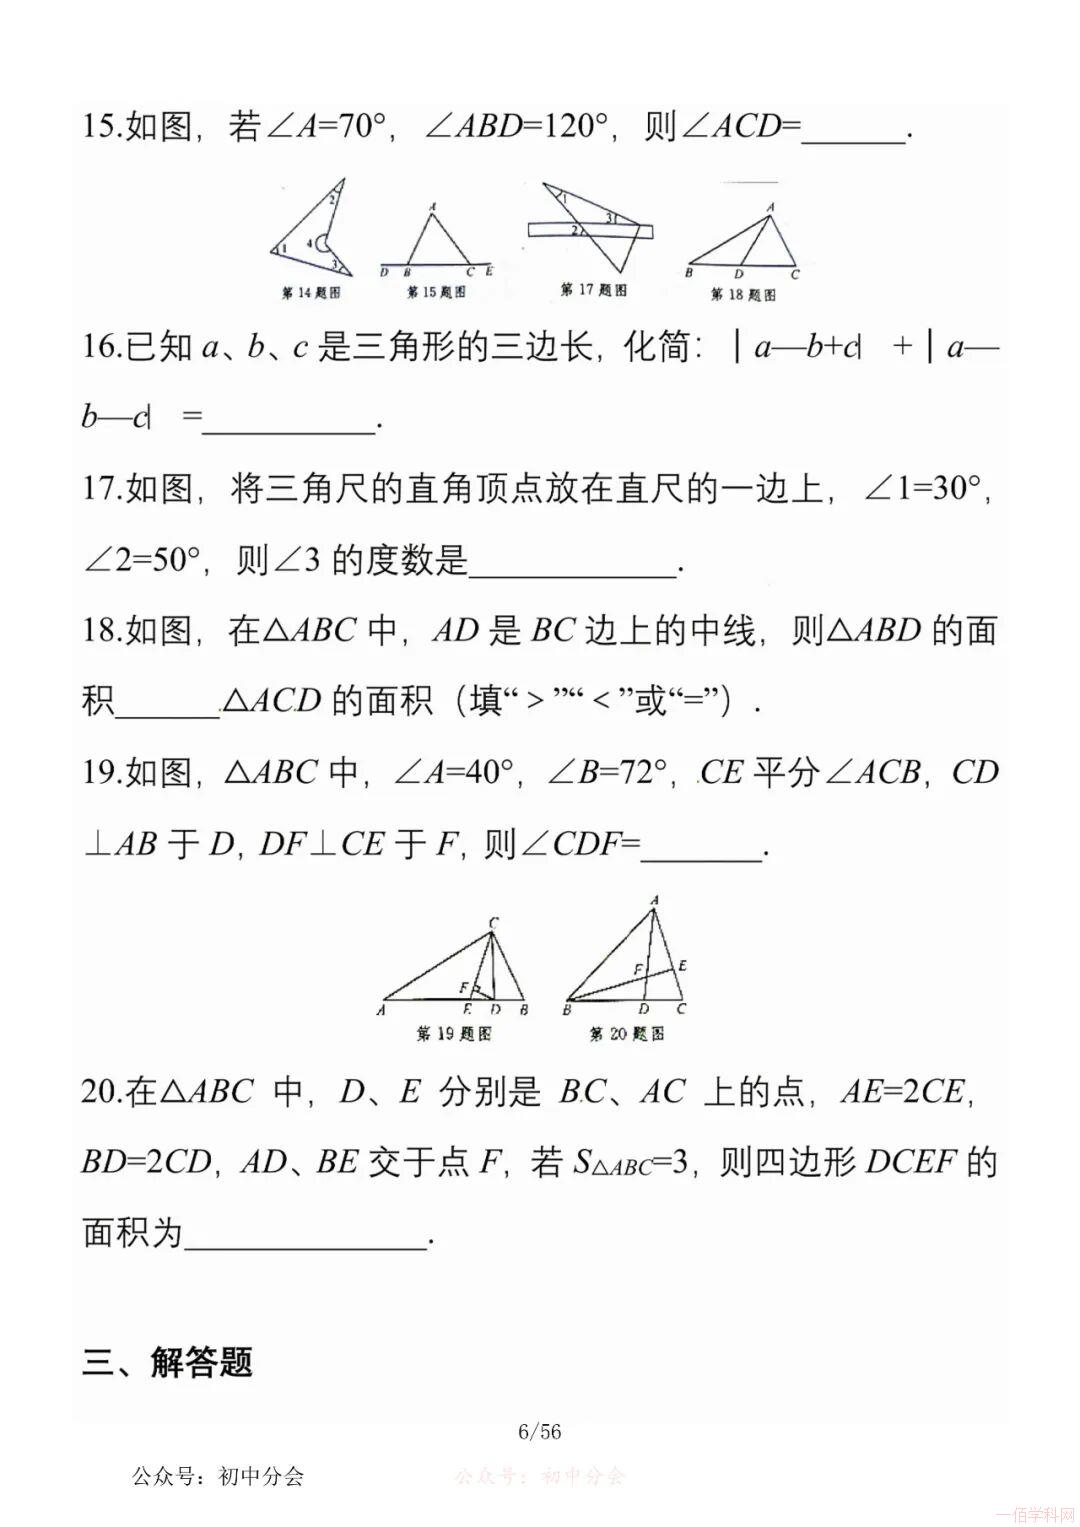 15.如图，若∠A=70°，∠ABD=120°，则∠ACD=______.
2
1
4
3
第14题图
A
D B C E
第15题图
1
3
2
第17题图
A
B D C
第18题图
16.已知 a、b、c 是三角形的三边长，化简：|a—b+c| +|a—
b—c| =__________.
17.如图，将三角尺的直角顶点放在直尺的一边上，∠1=30°，
∠2=50°，则∠3 的度数是____________.
18.如图，在△ABC 中，AD 是 BC 边上的中线，则△ABD 的面
积______△ACD 的面积（填“＞”“＜”或“=”）.
19.如图，△ABC 中，∠A=40°，∠B=72°，CE 平分∠ACB，CD
⊥AB 于 D，DF⊥CE 于 F，则∠CDF=_______.
C
F
A E D B
第19题图
A
F E
B D C
第20题图
20.在△ABC 中，D、E 分别是 BC、AC 上的点，AE=2CE，
BD=2CD，AD、BE 交于点 F，若 S△ABC=3，则四边形 DCEF 的
面积为______________.
三、解答题
6/56
公众号：初中分会 公众号：初中分会
一佰学科网